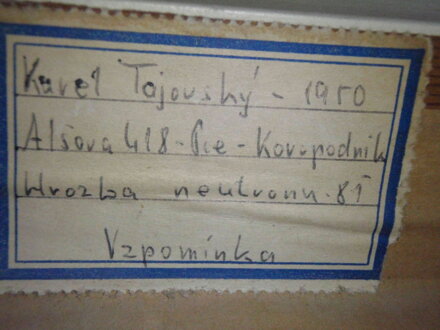 Karel Tajovský - 1950
Alšova 418 - Pce - Kovopodnik
Hrozba neutronu. 81
Vzpomínka